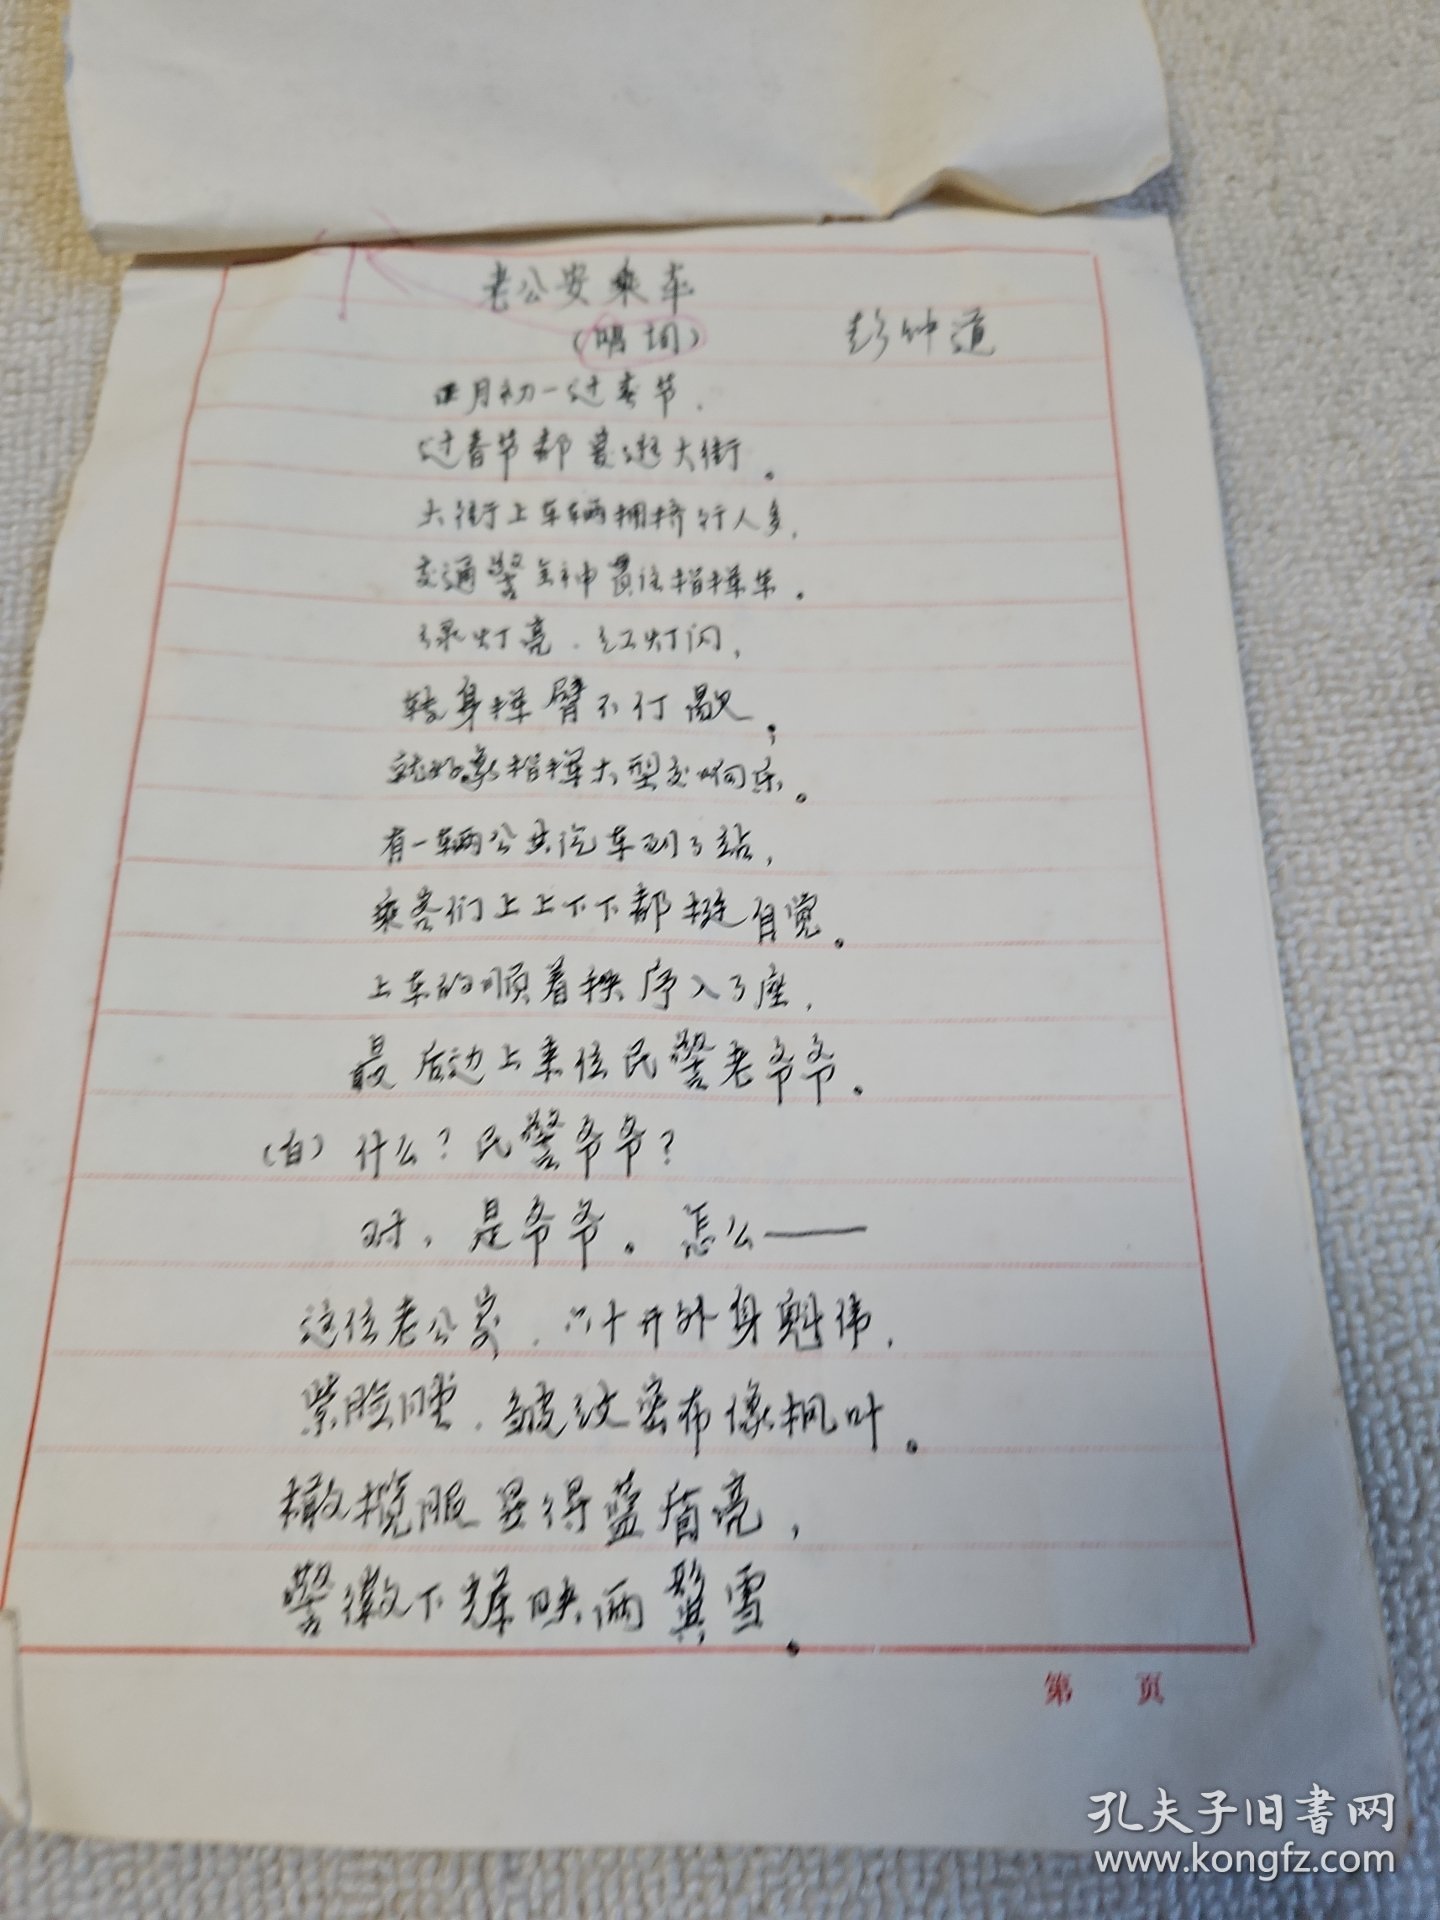 老公安乘车
(唱词) 彭钟道
正月初一过春节，
过春节都爱逛大街。
大街上车辆拥挤行人多，
交通警全神贯注指挥车。
绿灯亮，红灯闪，
转身挥臂不停歇，
就好象指挥大型交响乐。
有一辆公共汽车到了站，
乘客们上上下下都挺自觉。
上车的顺着秩序入了座，
最后边上来位民警老爷爷。
(白)什么？民警爷爷？
对，是爷爷。怎么——
这位老公安，六十开外身魁伟，
紫脸膛，皱纹密布像枫叶。
橄榄服显得蓝盾亮，
警徽下辉映两鬓雪。
第 页
孔夫子旧书网
www.kongfz.com